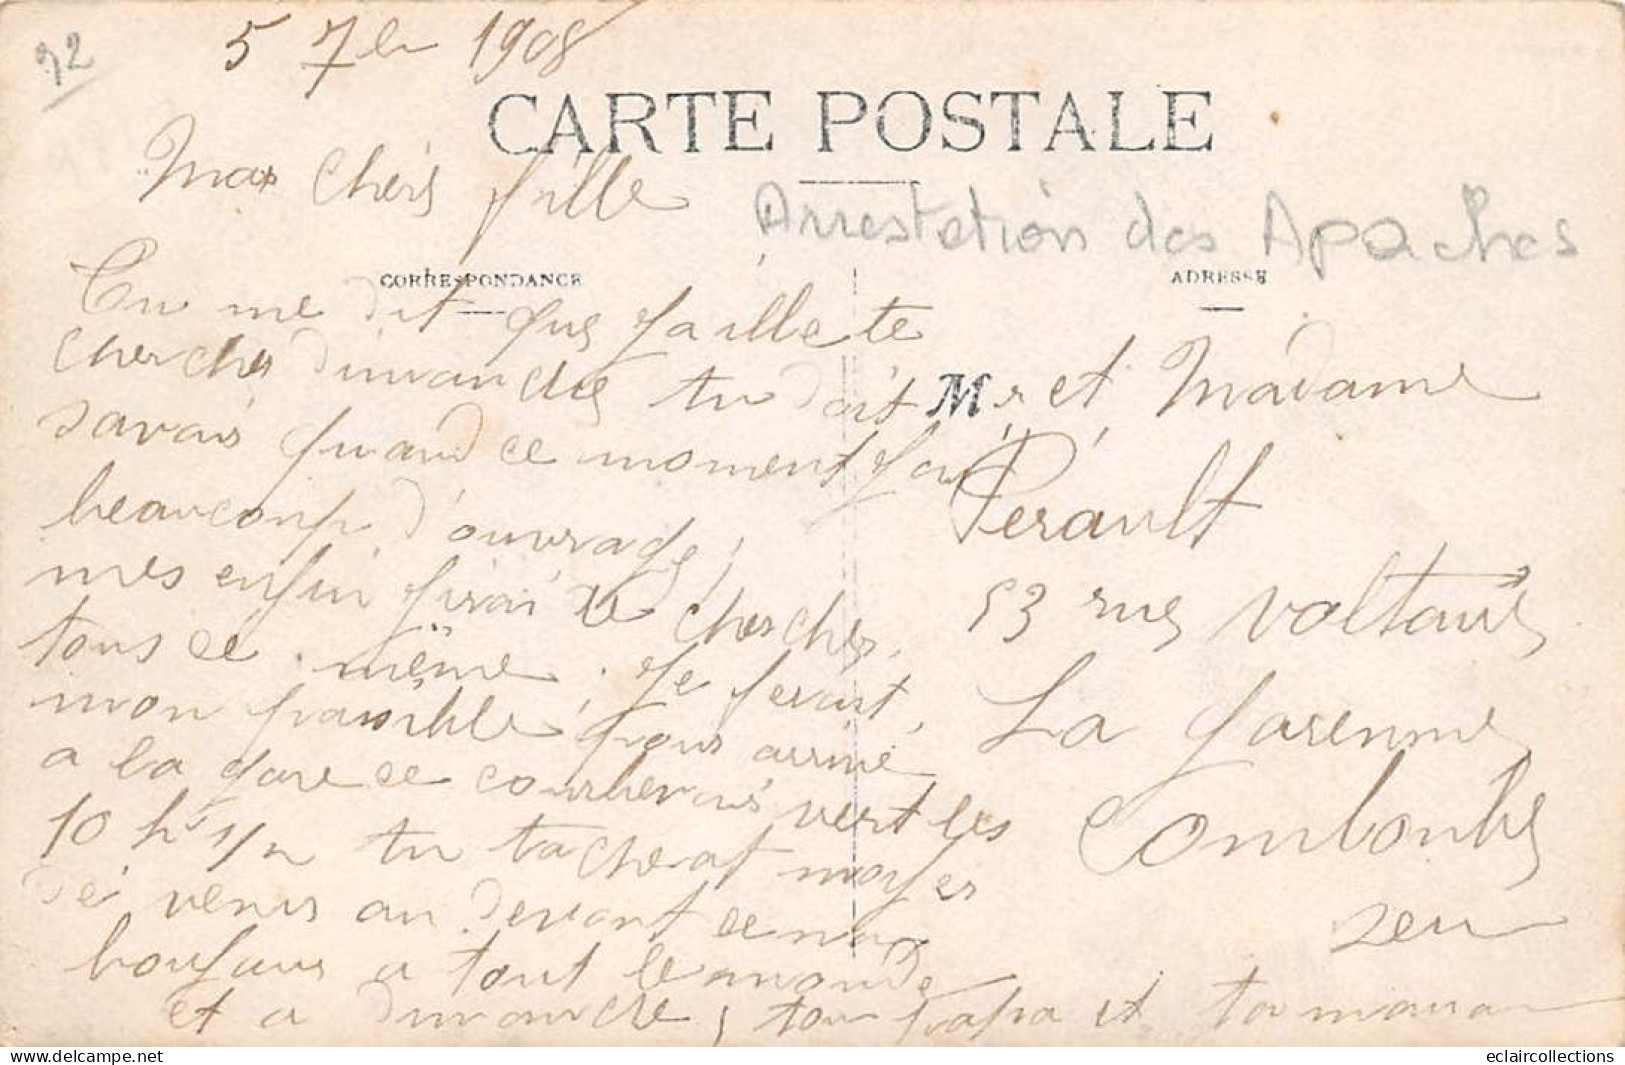 92
5 7bre 1908
CARTE POSTALE
Ma chérs fille
Arrestetion des Apaches
CORRESPONDANCE
ADRESSE
Tu me dit que j'aille te
cherches dimanches tu doit
savais quand ce moment j'ai
beaucoup d'ouvrage,
mes enfin j'irai te cherches,
tous ce même, je ferait,
mon possible, pour arrivé
a la gare ce courbevois vert les
10 hs 1/2 tu tacherat moyes
dé venir au devant ce nous
bonjours a tout le monde
et a dimanche, ton papa et ta maman
Mr et Madame
Perault
53 rue voltaire
La garenne
Combombes
Seine
eclaircollections